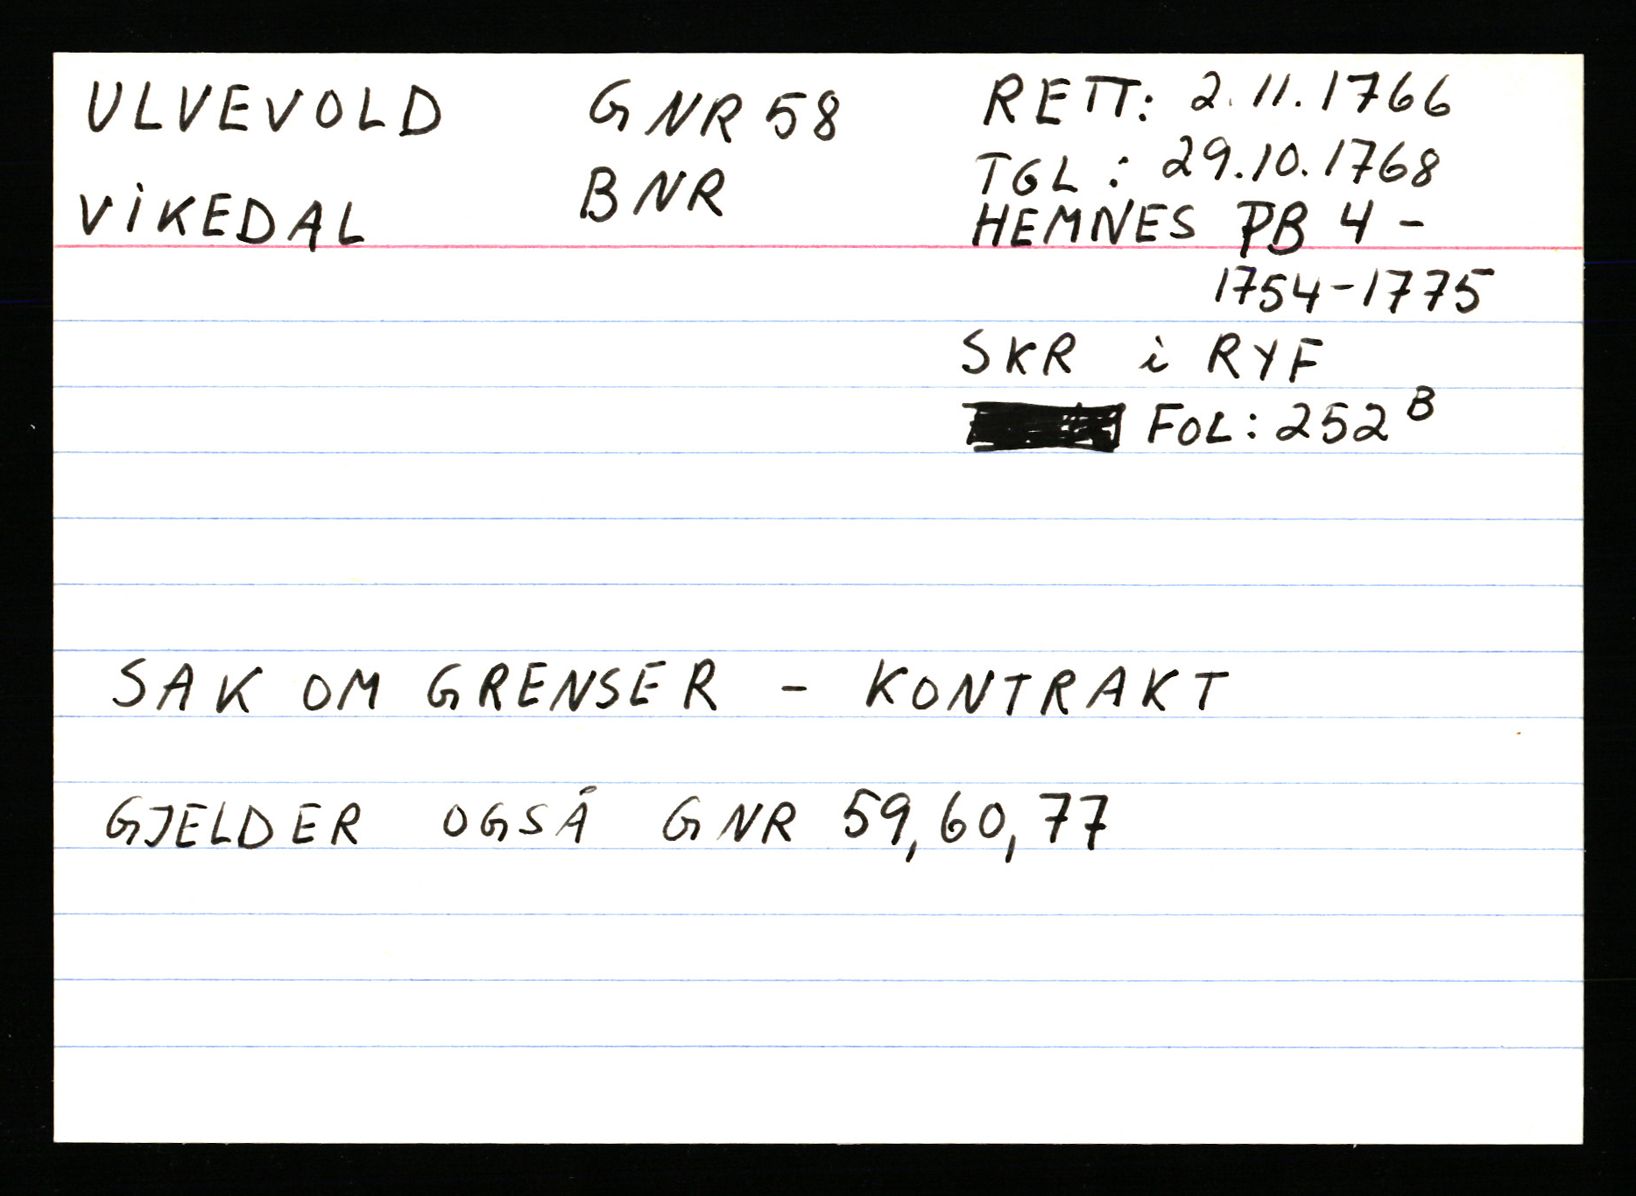 ULVEVOLD GNR 58 RETT: 2.11.1766
VIKEDAL BNR TGL: 29.10.1768
HEMNES PB 4 -
1754-1775
SKR i RYF
FOL: 252 B
SAK OM GRENSER - KONTRAKT
GJELDER OGSÅ GNR 59, 60, 77